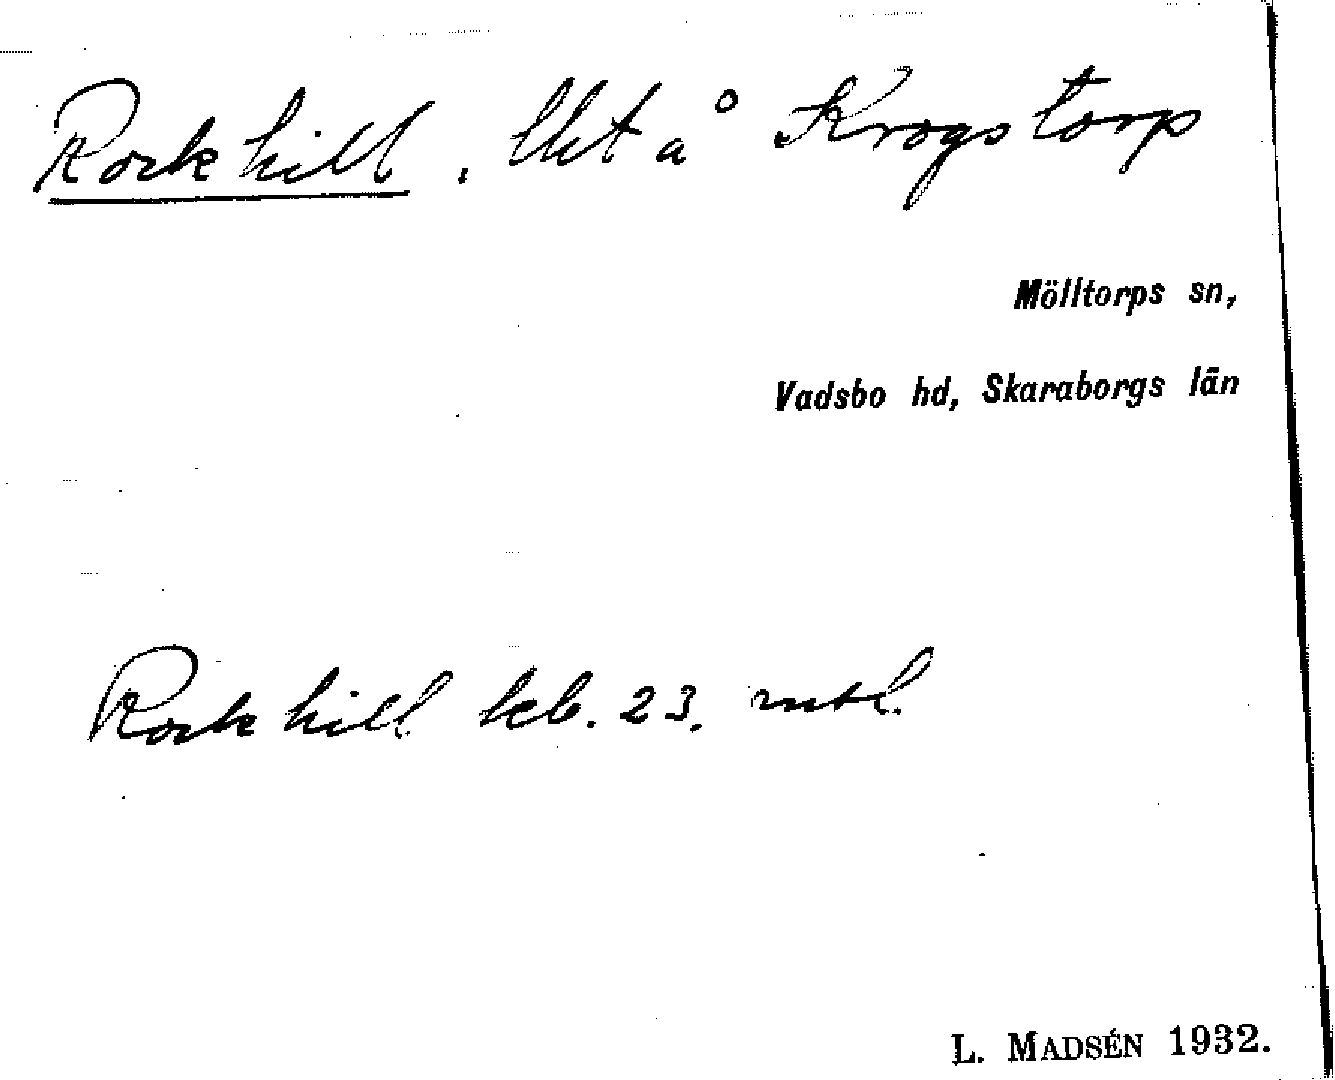 Rockhill, lht å Krogstorp
Mölltorps sn,
Vadsbo hd, Skaraborgs län
Rockhill kb. 23. mtl.
L. MADSÉN 1932.